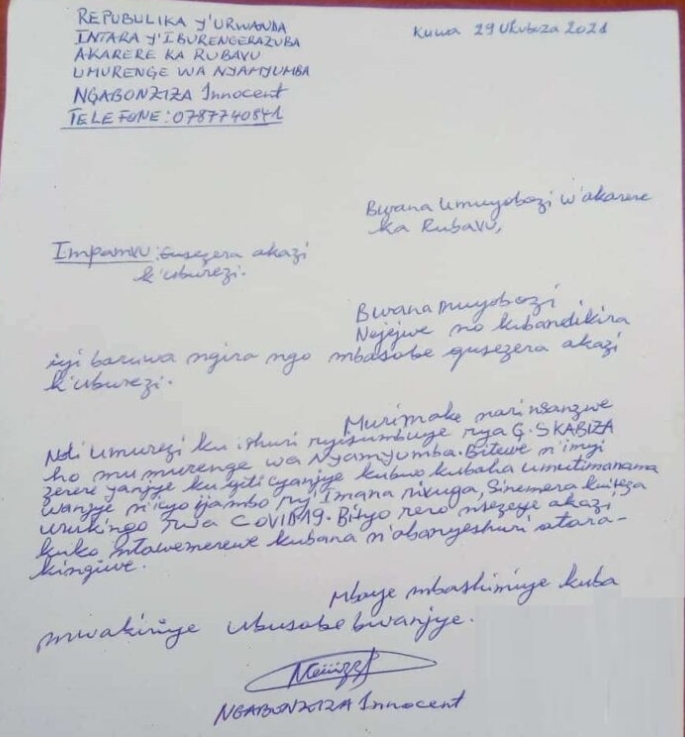 REPUBULIKA Y'URWANDA
INTARA Y'IBURENGERAZUBA
AKARERE KA RUBAVU
UMURENGE WA NYAMYUMBA
NGABONZIZA Innocent
TELEFONE: 0787740841
Kuwa 29 Ukuboza 2021
Bwana Umuyobozi w'akarere
ka Rubavu,
Impamvu: Gusezera akazi
k'uburezi.
Bwana muyobozi
Nejejwe no kubandikira
iyi baruwa ngira ngo mbasabe gusezera akazi
k'uburezi.
Murimake nari nsanzwe
Ndi umurezi ku ishuri ryisumbuye rya G.SKABIZA
ho mu murenge wa Nyamyumba. Bitewe n'imyi
zerere yanjye ku giti cyanjye kubwo kubaha umutimanama
wanjye n'icyo ijambo ry'Imana rivuga, Sinemera kwiteza
urukingo rwa COVID19. Bityo rero nsezeye akazi
kuko ntawemerewe kubana n'abanyeshuri atara-
kingiwe.
Mbaye mbashimiye kuba
mwakiriye ubusabe bwanjye.
NGABONZIZA Innocent